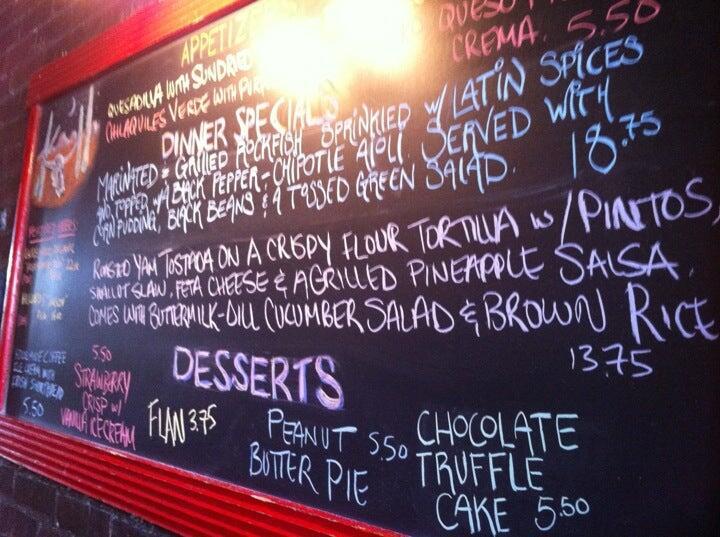 APPETIZ
QUESO
CREMA. 5.50
QUESADILLA WITH SUNDRIED
CHILAQUILES VERDE WITH
DINNER SPECIALS
MARINATED & GRILLED ROCKFISH SPRINKLED W/ LATIN SPICES
AND TOPPED W/ A BLACK PEPPER-CHIPOTLE AIOLI. SERVED WITH
CORN PUDDING, BLACK BEANS & A TOSSED GREEN SALAD. 18.75
ROASTED YAM TOSTADA ON A CRISPY FLOUR TORTILLA W/ PINTOS,
SHALLOT SLAW, FETA CHEESE & A GRILLED PINEAPPLE SALSA.
COMES WITH BUTTERMILK-DILL CUCUMBER SALAD & BROWN RICE
13.75
DESSERTS
COFFEE
ICE CREAM WITH
5.50
5.50
STRAWBERRY
CRISP W/
VANILLA ICE CREAM
FLAN 3.75
PEANUT 5.50
BUTTER PIE
CHOCOLATE
TRUFFLE
CAKE 5.50